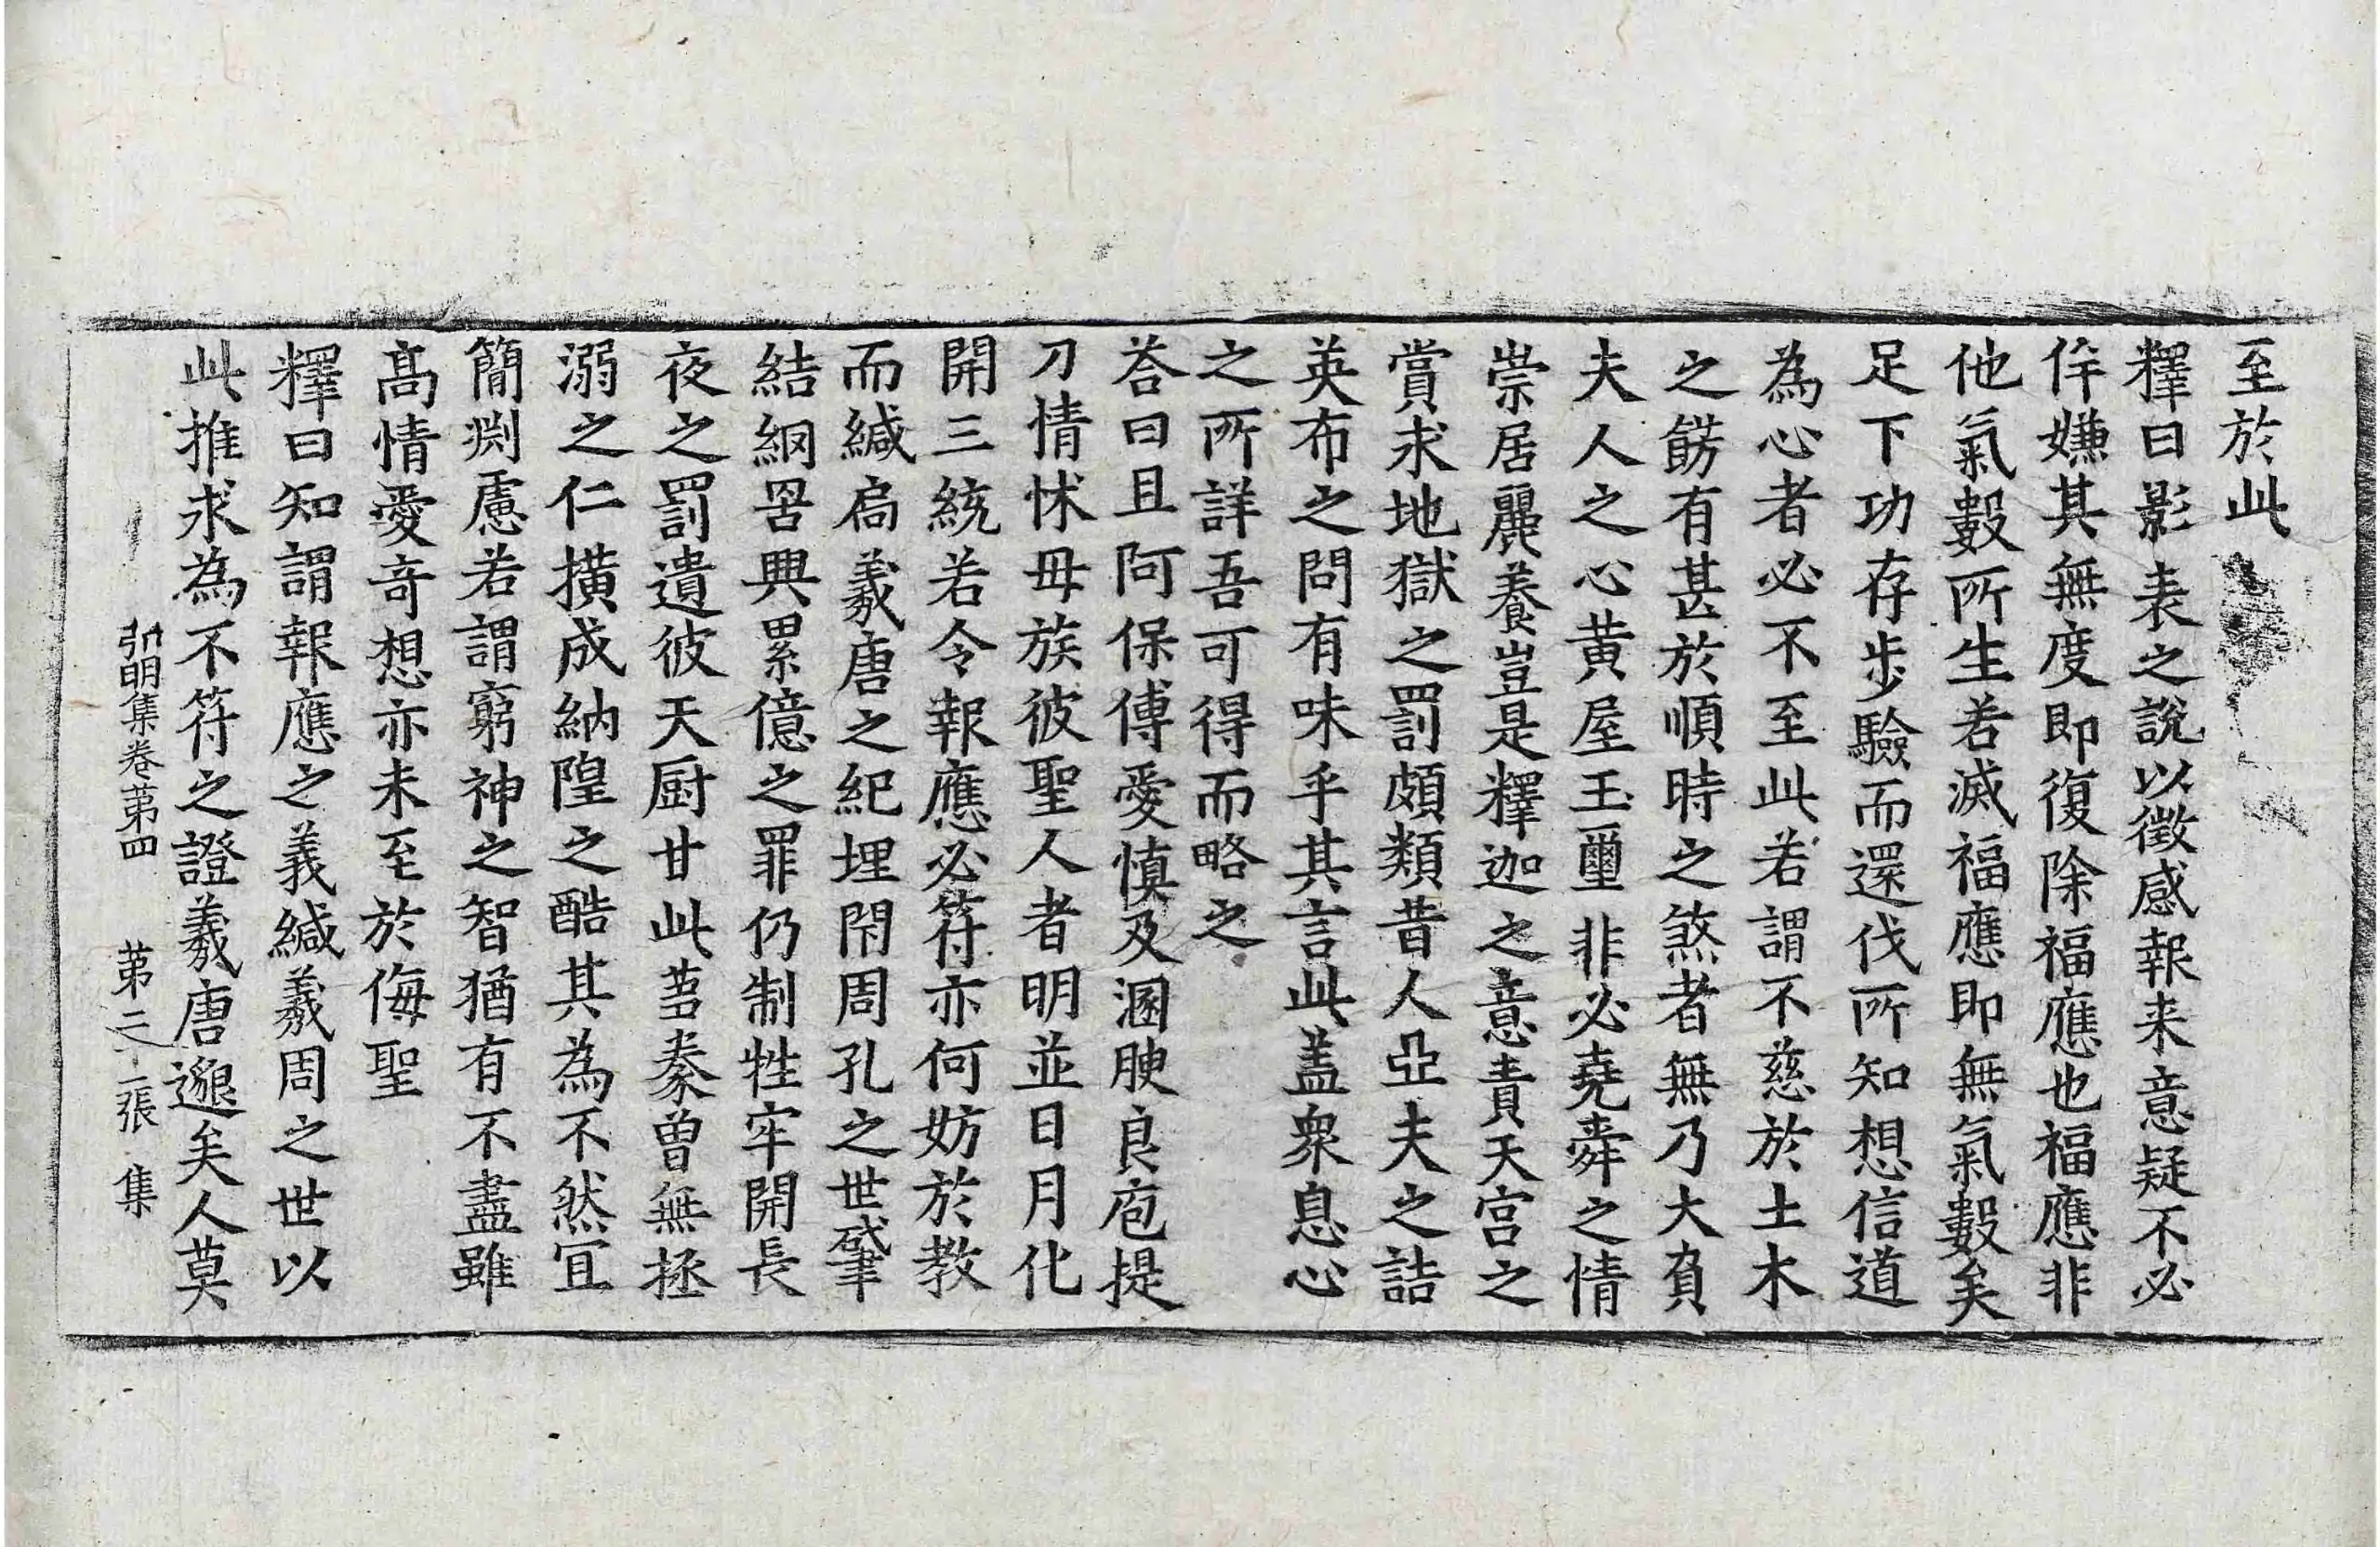 至於此
釋曰影表之說以徵感報来意疑不必
侔嫌其無度即復除福應也福應非
他氣數所生若滅福應即無氣數矣
足下功存步驗而還伐所知想信道
為心者必不至此若謂不慈於土木
之飾有甚於順時之煞者無乃大負
夫人之心黄屋玉璽非必堯舜之情
崇居麗養豈是釋迦之意責天宮之
賞求地獄之罰頗類昔人亞夫之詰
英布之問有味乎其言此盖衆息心
之所詳吾可得而略之
荅曰且阿保傅愛慎及溷腴良庖提
刀情怵毋族彼聖人者明並日月化
開三統若令報應必符亦何妨於教
而緘扄羲唐之紀埋閇周孔之世肈
結網罟興累億之罪仍制牲牢開長
夜之罰遺彼天厨甘此芻豢曾無拯
溺之仁横成納隍之酷其為不然冝
簡淵慮若謂窮神之智猶有不盡雖
髙情愛竒想亦未至於侮聖
釋曰知謂報應之義緘羲周之世以
此推求為不符之證羲唐邈矣人莫
弘明集卷苐四 苐二十一張 集